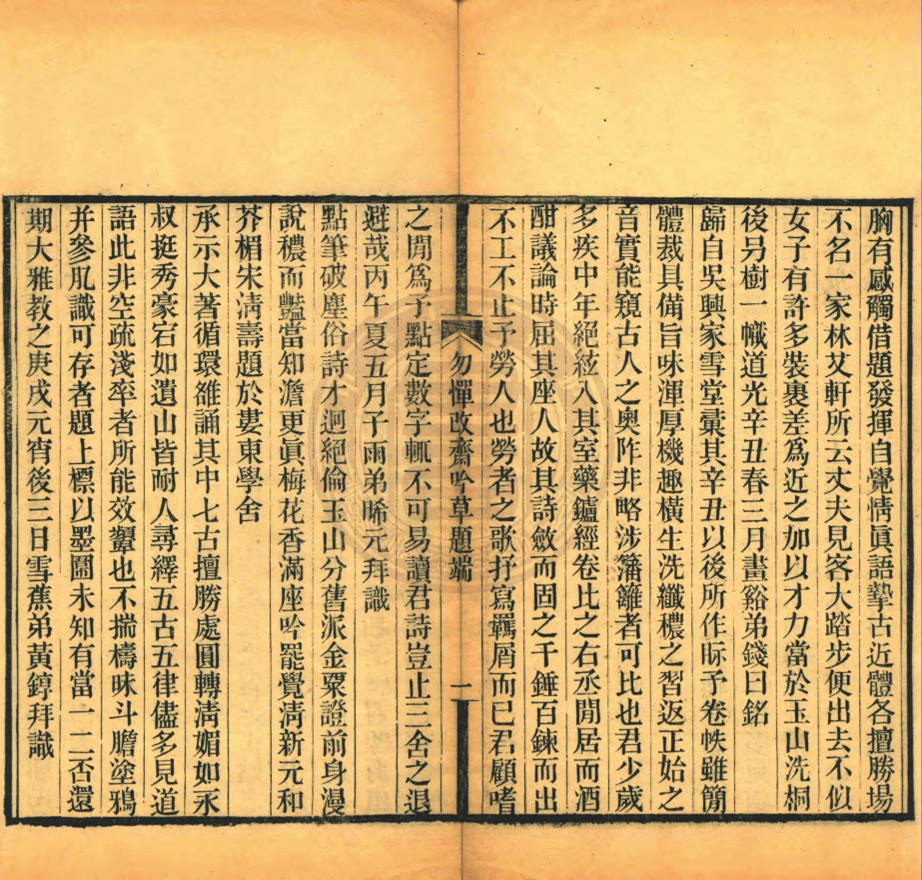 胸有感觸借題發揮自覺情眞語摯古近體各擅勝場
不名一家林艾軒所云丈夫見客大踏步便出去不似
女子有許多裝裹差爲近之加以才力當於玉山洗桐
後另樹一幟道光辛丑春三月畫谿弟錢曰銘
歸自吳興家雪堂彚其辛丑以後所作眎予卷帙雖簡
體裁具備旨味渾厚機趣橫生洗纖穠之習返正始之
音實能窺古人之奧阼非略涉籓籬者可比也君少歲
多疾中年絕絃入其室藥鑪經卷比之右丞閒居而酒
酣議論時屈其座人故其詩斂而固之千錘百鍊而出
不工不止予勞人也勞者之歌抒寫羈屑而已君顧嗜
勿憚改齋吟草題端
一
之閒爲予點定數字輒不可易讀君詩豈止三舍之退
避哉丙午夏五月子雨弟晞元拜識
點筆破塵俗詩才迥絕倫玉山分舊派金粟證前身漫
說穠而豔當知澹更眞梅花香滿座吟罷覺淸新元和
芥楣宋淸壽題於婁東學舍
承示大著循環雒誦其中七古擅勝處圓轉淸媚如永
叔挺秀豪宕如遺山皆耐人尋繹五古五律儘多見道
語此非空疏淺率者所能效顰也不揣檮昧斗膽塗鴉
并參肊識可存者題上標以墨圍未知有當一二否還
期大雅敎之庚戌元宵後三日雪蕉弟黃錞拜識